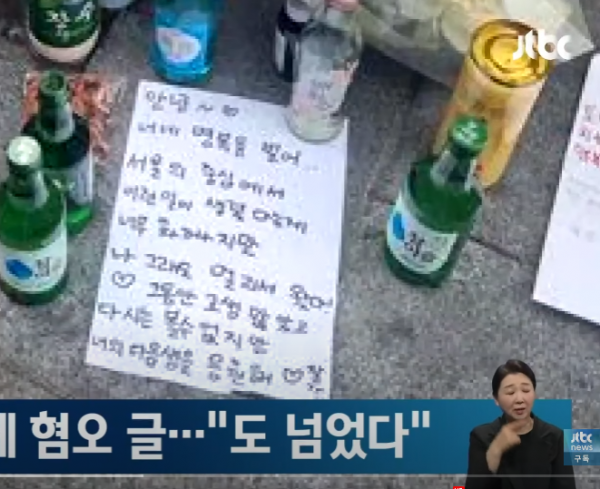 jtbc
안녕~♡
너네 명복을 빌어...
서울의 중심에서
이런일이 생겼다는게
너무 화가나지만
나 그래도 멀리서 왔어
♡ 그동안 고생 많았고
다시는 볼수 없지만
너의 다음생을 응원해 ♡
혐오 글…"도 넘었다"
jtbc
news
구독